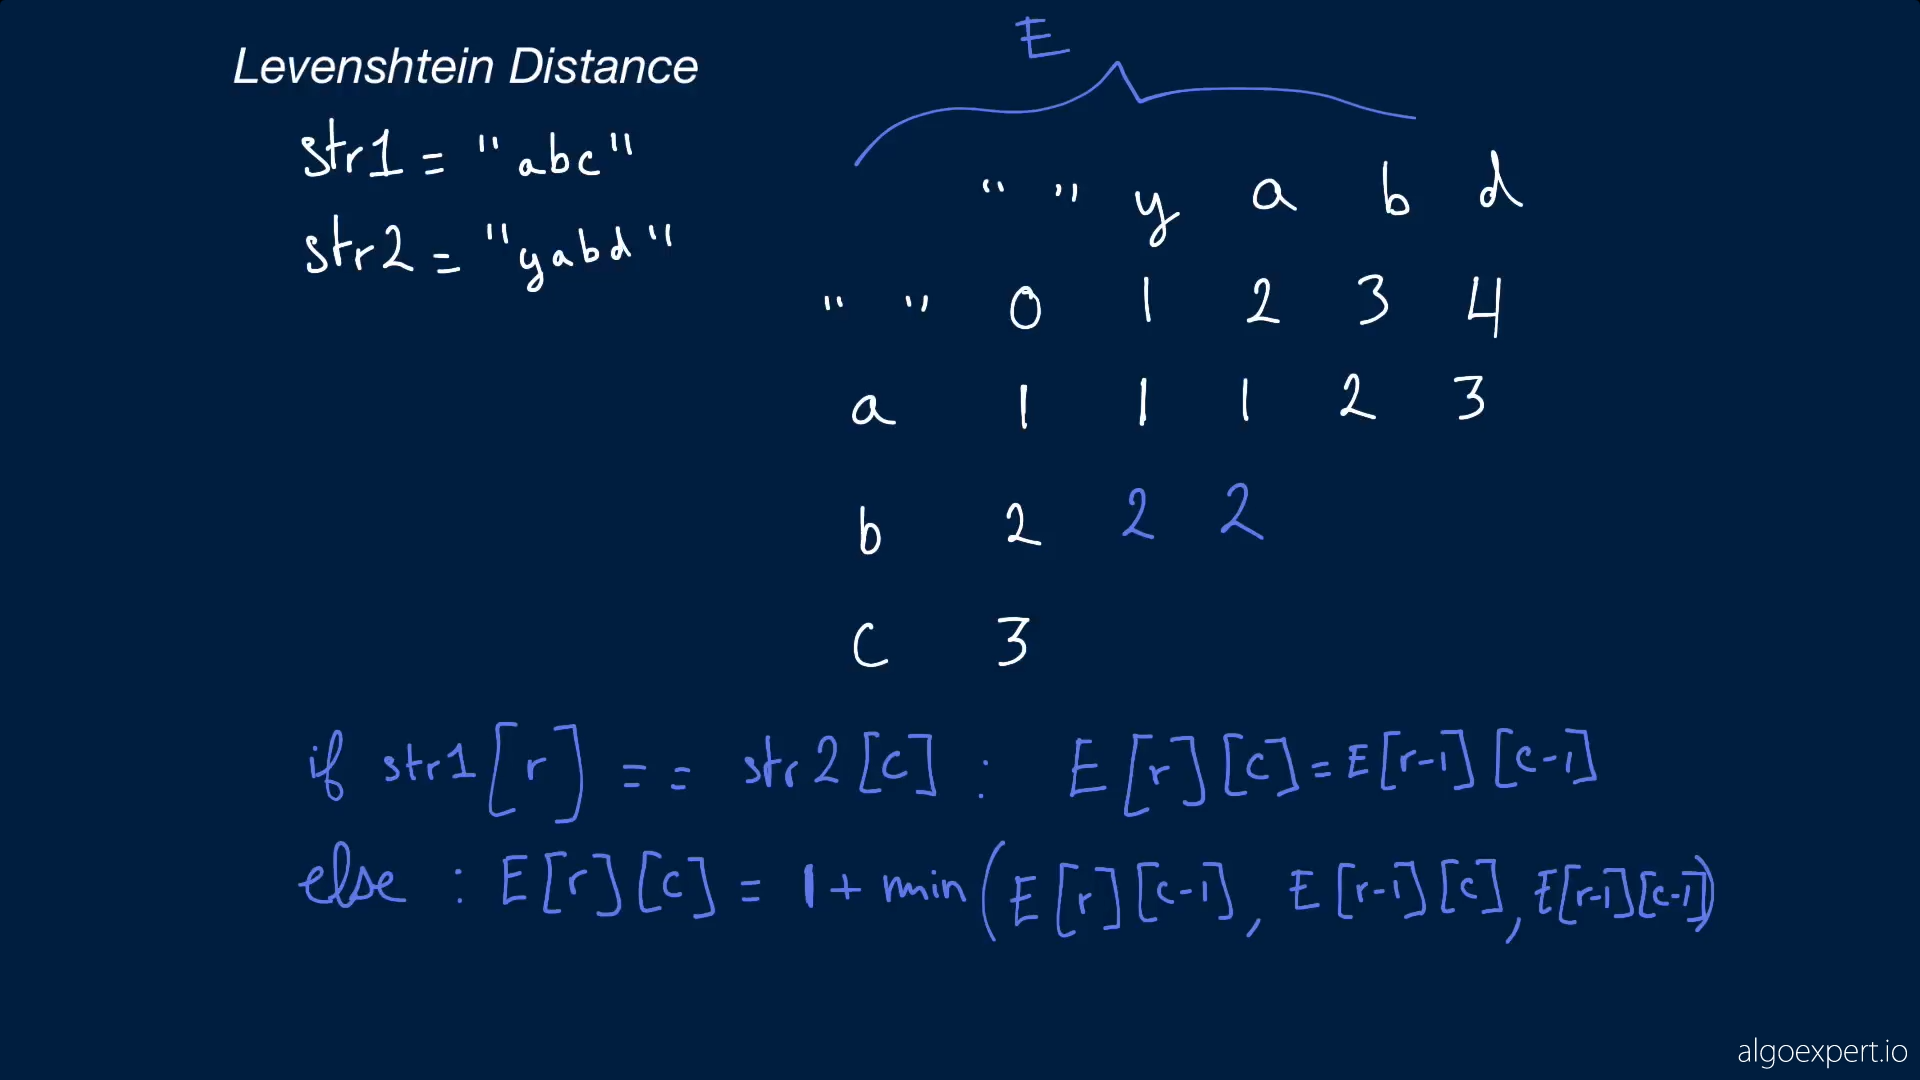 Levenshtein Distance
str1 = "abc"
str2 = "yabd"
E
" " y a b d
" " 0 1 2 3 4
a 1 1 1 2 3
b 2 2 2
c 3
if str1[r] == str2[c] : E[r][c] = E[r-1][c-1]
else : E[r][c] = 1 + min(E[r][c-1], E[r-1][c], E[r-1][c-1])
algoexpert.io